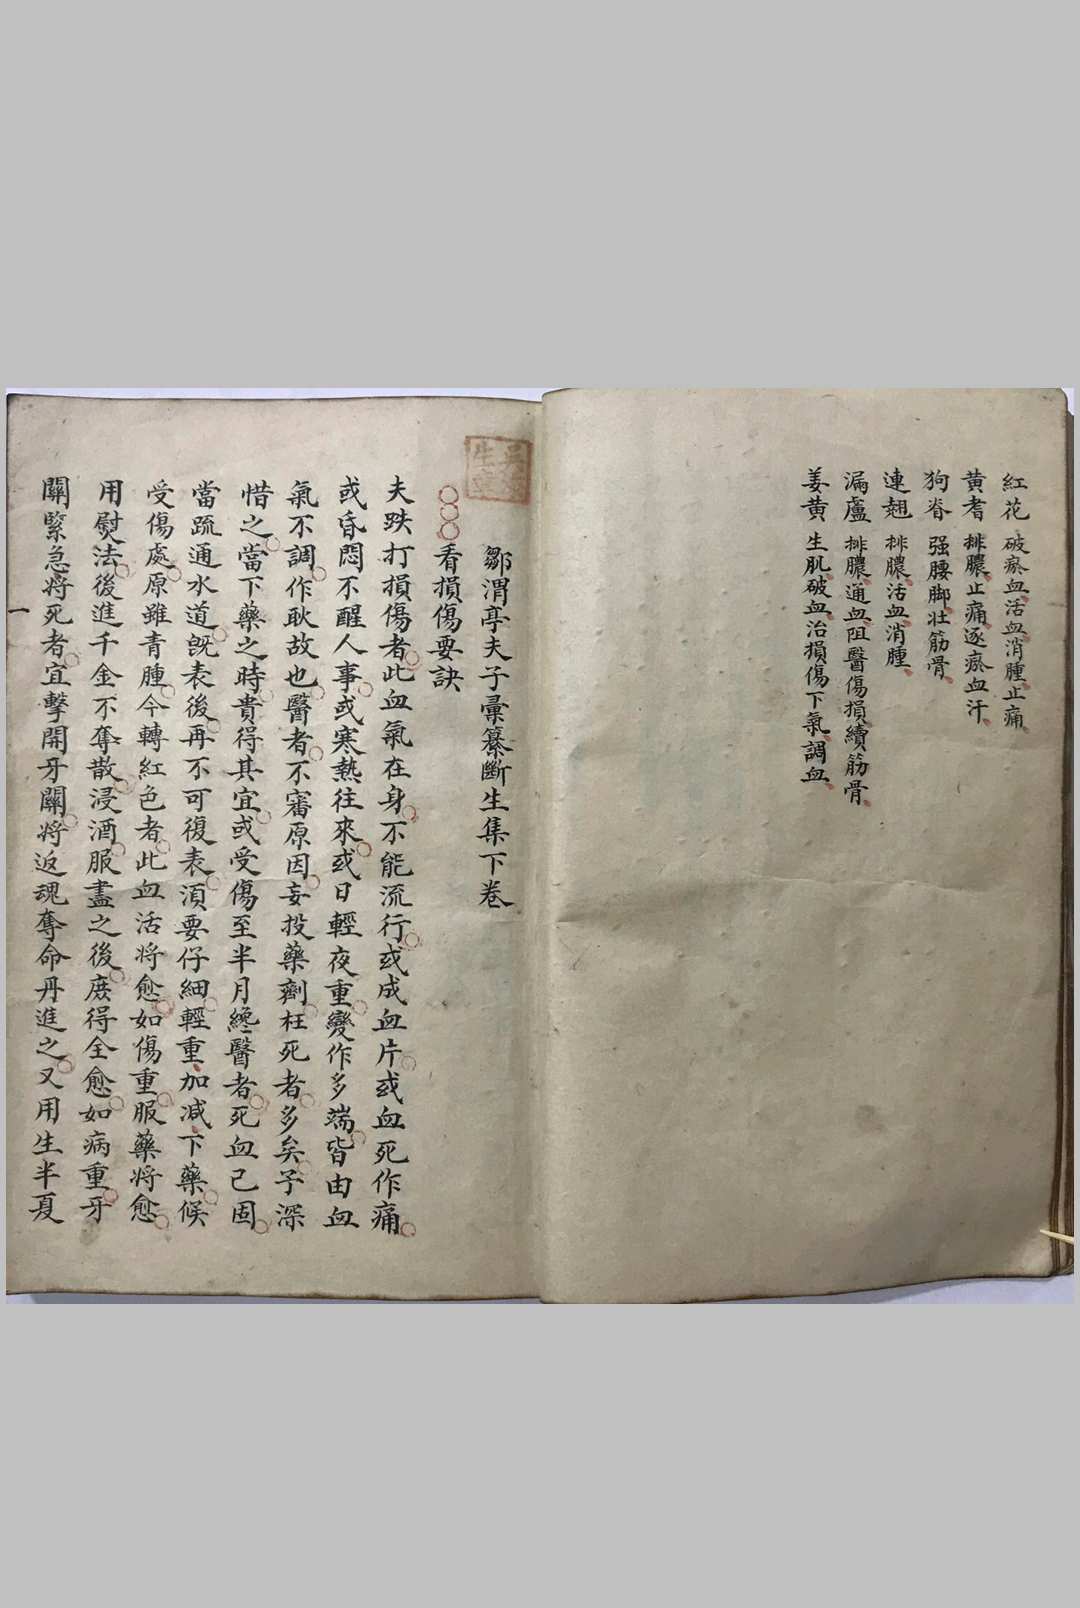 紅花 破瘀血活血消腫止痛
黃耆 排膿止痛逐瘀血汗
狗脊 强腰脚壮筋骨
連翹 排膿活血消腫
漏盧 排膿通血阻醫傷損續筋骨
姜黄 生肌破血治損傷下氣調血
鄒渭亭夫子彙纂斷生集下卷
看損傷要訣
夫跌打損傷者此血氣在身不能流行或成血片或血死作痛
或昏悶不醒人事或寒熱往來或日輕夜重變作多端皆由血
氣不調作耿故也醫者不審原因妄投藥劑枉死者多矣予深
惜之當下藥之時貴得其宜或受傷至半月纔醫者死血己固
當疏通水道既表後再不可復表湏要仔細輕重加减下藥候
受傷處原雖青腫今轉紅色者此血活将愈如傷重服藥将愈
用熨法後進千金不奪散浸酒服盡之後庶得全愈如病重牙
關緊急将死者宜擊開牙關将返魂奪命丹進之又用生半夏
一